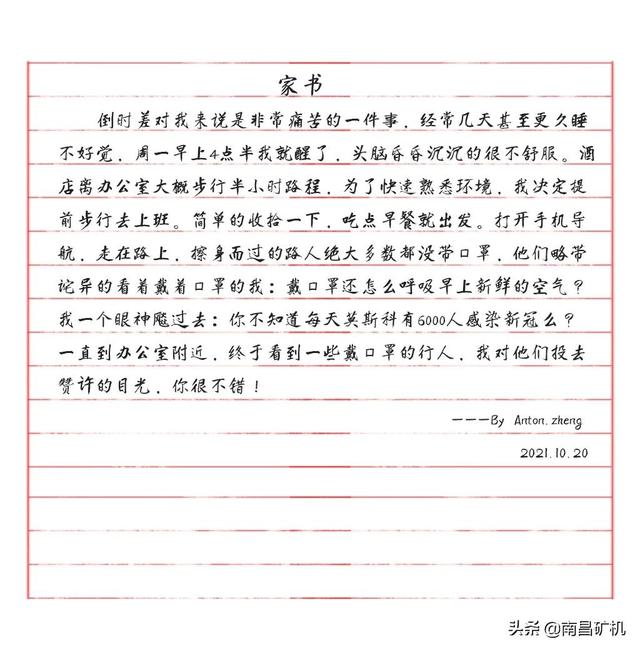 家书
倒时差对我来说是非常痛苦的一件事，经常几天甚至更久睡
不好觉，周一早上4点半我就醒了，头脑昏昏沉沉的很不舒服。酒
店离办公室大概步行半小时路程，为了快速熟悉环境，我决定提
前步行去上班。简单的收拾一下，吃点早餐就出发。打开手机导
航，走在路上，擦身而过的路人绝大多数都没带口罩，他们略带
诧异的看着戴着口罩的我：戴口罩还怎么呼吸早上新鲜的空气？
我一个眼神飚过去：你不知道每天莫斯科有6000人感染新冠么？
一直到办公室附近，终于看到一些戴口罩的行人，我对他们投去
赞许的目光，你很不错！
———By Anton.zheng
2021.10.20
头条 @南昌矿机